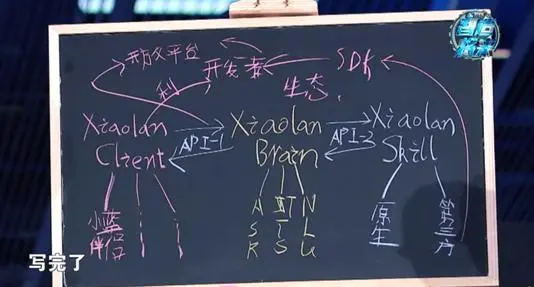 开放平台
开发者
SDK
利
生态
Xiaolan Client
API-1
Xiaolan Brain
API-2
Xiaolan Skill
小蓝伴侣
ASR
TTS
NLU
原生
第三方
写完了